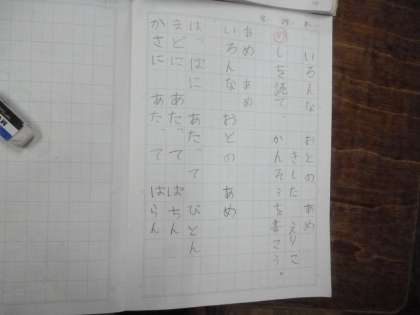 いろんな おとの あめ
きした えりこ
しを読て、かんそうを書こう。
あめ あめ
いろんな おとの あめ
はっぱに あたって ぴとん
まどに あたって ぱちん
かさに あたって ぱらん